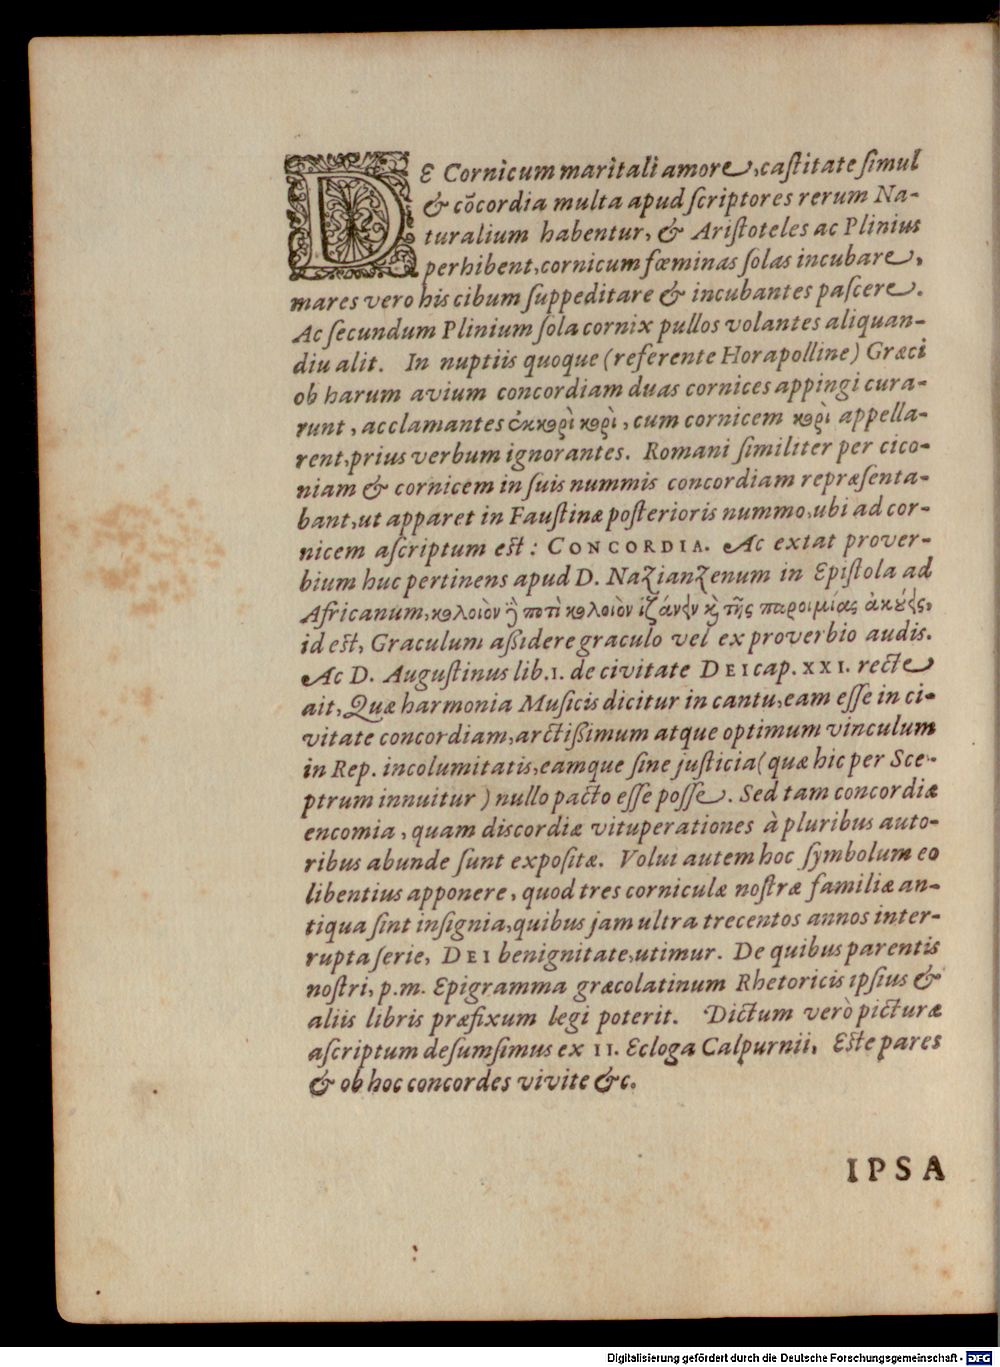 DE Cornicum maritali amore, castitate simul
& cõcordia multa apud scriptores rerum Na-
turalium habentur, & Aristoteles ac Plinius
perhibent, cornicum fœminas solas incubare,
mares vero his cibum suppeditare & incubantes pascere.
Ac secundum Plinium sola cornix pullos volantes aliquan-
diu alit. In nuptiis quoque (referente Horapolline) Græci
ob harum avium concordiam duas cornices appingi cura-
runt, acclamantes ἐκκορὶ κορὶ, cum cornicem κορὶ appella-
rent, prius verbum ignorantes. Romani similiter per cico-
niam & cornicem in suis nummis concordiam repræsenta-
bant, ut apparet in Faustinæ posterioris nummo, ubi ad cor-
nicem ascriptum est: CONCORDIA. Ac extat prover-
bium huc pertinens apud D. Nazianzenum in Epistola ad
Africanum, κολοιὸν ποτὶ κολοιὸν ἱζάνειν καὶ τῆς παροιμίας ἀκούεις,
id est, Graculum assidere graculo vel ex proverbio audis.
Ac D. Augustinus lib. I. de civitate DEI cap. XXI. recte
ait, Quæ harmonia Musicis dicitur in cantu, eam esse in ci-
vitate concordiam, arctissimum atque optimum vinculum
in Rep. incolumitatis, eamque sine justicia (quæ hic per Sce-
ptrum innuitur) nullo pacto esse posse. Sed tam concordiæ
encomia, quam discordiæ vituperationes à pluribus auto-
ribus abunde sunt expositæ. Volui autem hoc symbolum eo
libentius apponere, quod tres corniculæ nostræ familiæ an-
tiqua sint insignia, quibus jam ultra trecentos annos inter-
rupta serie, DEI benignitate, utimur. De quibus parentis
nostri, p. m. Epigramma græcolatinum Rhetoricis ipsius &
aliis libris præfixum legi poterit. Dictum verò picturæ
ascriptum desumsimus ex II. Ecloga Calpurnii, Este pares
& ob hoc concordes vivite &c.
IPSA
Digitalisierung gefördert durch die Deutsche Forschungsgemeinschaft - DFG